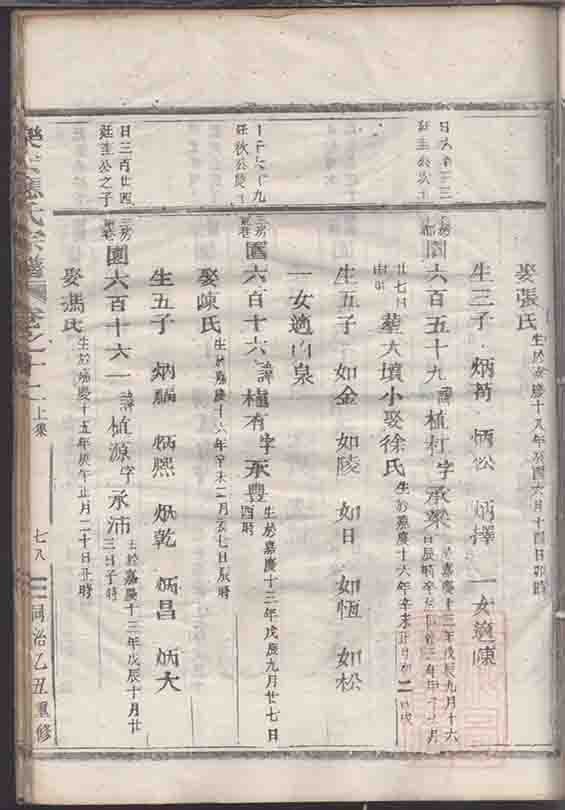 娶張氏 生於嘉慶十八年癸酉六月十四日卯時
生三子 炳荀 炳松 炳擇 一女適陳
六百五十九 諱植村 字承梁 嘉慶十三年戊辰九月十六
廿七日 葬大墳小娶徐氏 生於嘉慶十六年辛未正月初二
生五子 如金 如陵 如日 如恆 如松
一女適山泉
三房 園六百十六 諱權有 字承豐 生於嘉慶十三年戊辰九月廿七日酉時
娶陳氏 生於嘉慶十六年辛未二月初七日辰時
生五子 炳 炳熙 炳乾 炳昌 炳大
日三百廿四 廷圭公之子 三房 園六百十六一 諱植源 字承沛 生於嘉慶十三年戊辰十月廿三日子時
娶馮氏 生於嘉慶十五年庚午正月二十日丑時
氏宗譜 卷之十二 上集 七八 同治乙丑重修